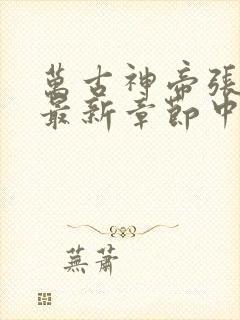 萬古神帝張
最新章節中
蕪蕭